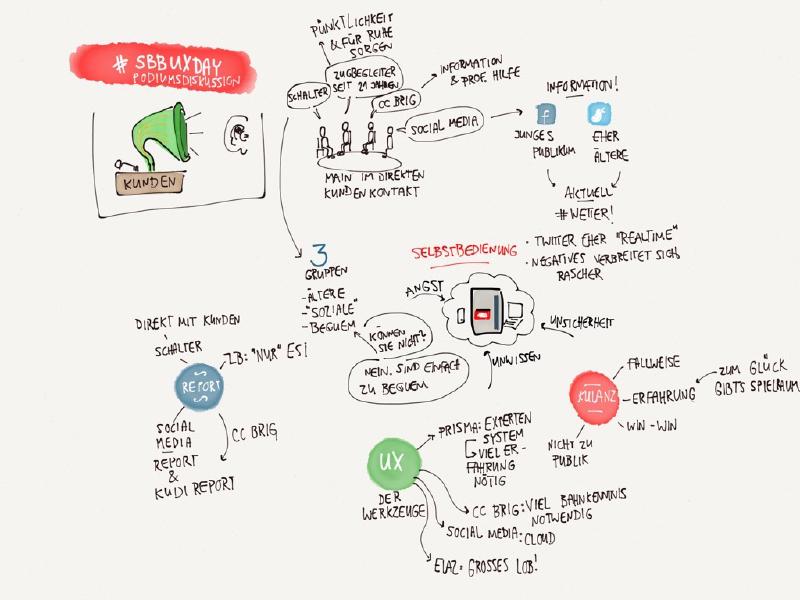 # SBBUXDAY
PODIUMSDISKUSSION
KUNDEN
PÜNKTLICHKEIT
& FÜR RUHE
SORGEN
SCHALTER
ZUGBEGLEITER
SEIT 21 JAHREN
CC BRIG
INFORMATION
& PROF. HILFE
SOCIAL MEDIA
MAIN IM DIREKTEN
KUNDENKONTAKT
INFORMATION!
f
JUNGES
PUBLIKUM
EHER
ÄLTERE
AKTUELL
#WETTER!
· TWITTER EHER "REALTIME"
· NEGATIVES VERBREITET SICH
RASCHER
3
GRUPPEN
-ÄLTERE
-"SOZIALE"
-BEQUEM
SELBSTBEDIENUNG
ANGST
UNSICHERHEIT
UNWISSEN
KÖNNEN
SIE NICHT?
NEIN. SIND EINFACH
ZU BEQUEM
DIREKT MIT KUNDEN
SCHALTER
REPORT
ZB: "NUR" ESI
SOCIAL
MEDIA
REPORT
&
KUDI REPORT
CC BRIG
KULANZ
FALLWEISE
-ERFAHRUNG
WIN-WIN
ZUM GLÜCK
GIBTS SPIELRAUM
NICHT ZU
PUBLIK
UX
DER
WERKZEUGE
PRISMA: EXPERTEN
SYSTEM
VIEL ER-
FAHRUNG
NÖTIG
CC BRIG: VIEL BAHNKENNTNIS
NOTWENDIG
SOCIAL MEDIA: CLOUD
GROSSES LOB!